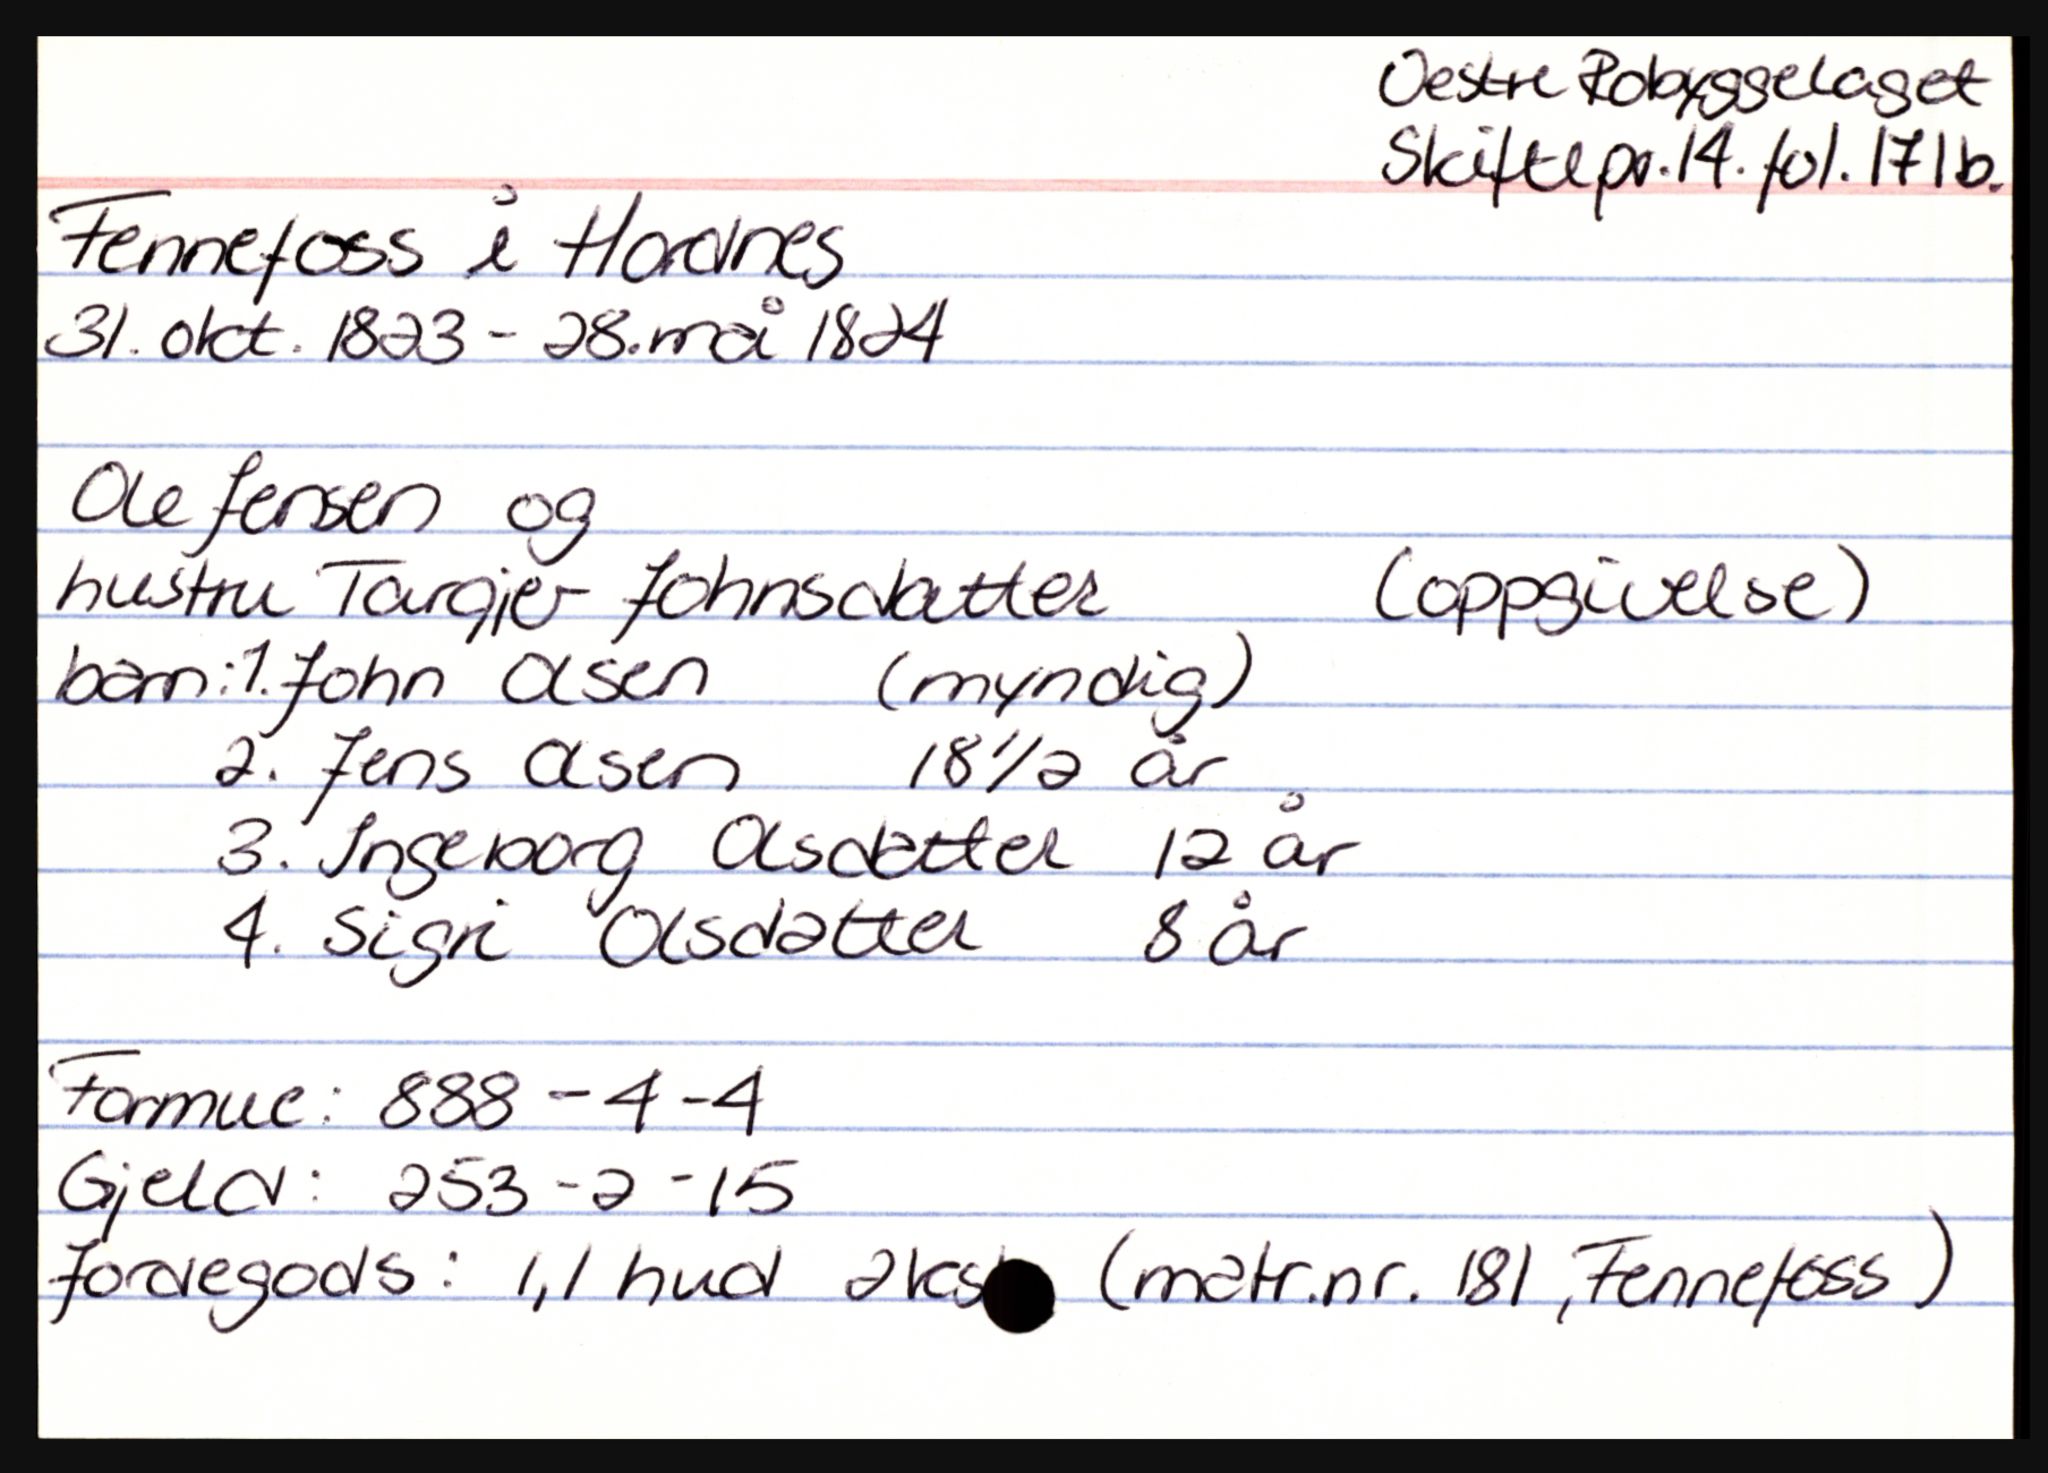 Vestre Robyggelaget
Skiftepr. 14. fol. 171b.
Fennefoss i Hordnes
31. okt. 1823 - 28. mai 1824
Ole Jensen og
hustru Targjer Johnsdatter (oppgivelse)
barn: 1. John Olsen (myndig)
2. Jens Olsen 18 1/2 år
3. Ingeborg Olsdatter 12 år
4. Sigri Olsdatter 8 år
Formue: 888 - 4 - 4
Gjeld: 253 - 2 - 15
Jordegods: 1,1 hud (matr.nr. 181, Fennefoss)